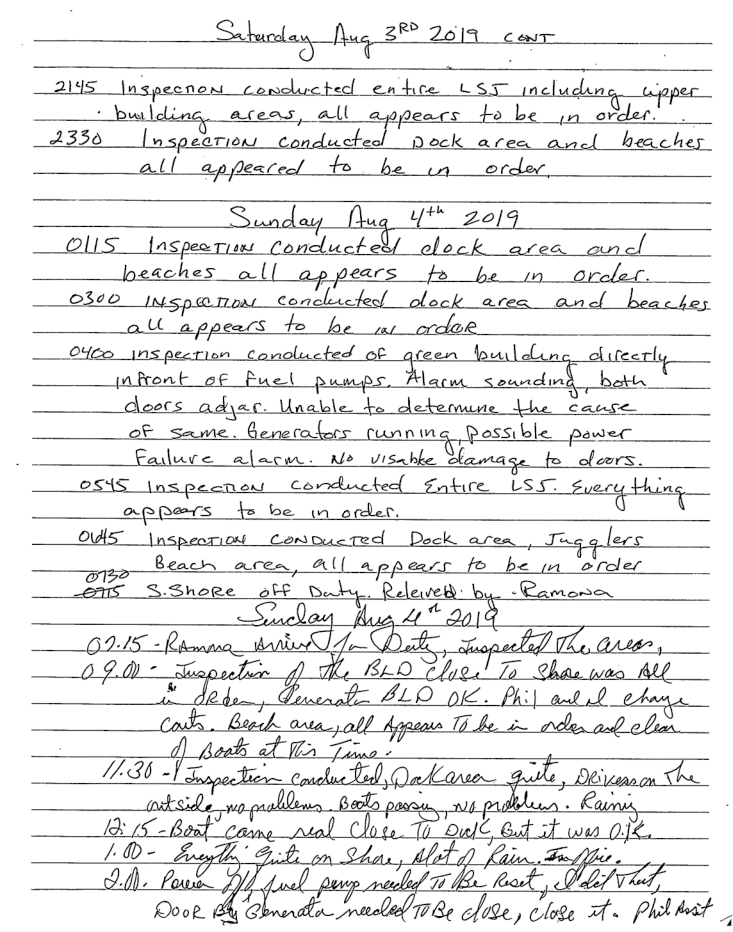 Saturday Aug 3RD 2019 CONT
2145 Inspection conducted entire LSJ including upper
building areas, all appears to be in order.
2330 Inspection conducted Dock area and beaches
all appeared to be in order.
Sunday Aug 4th 2019
0115 Inspection conducted dock area and
beaches all appears to be in order.
0300 Inspection conducted dock area and beaches
all appears to be in order
0400 inspection conducted of green building directly
infront of fuel pumps. Alarm sounding, both
doors adjar. Unable to determine the cause
of same. Generators running, possible power
Failure alarm. No visable damage to doors.
0545 Inspection conducted Entire LSJ. Everything
appears to be in order.
0645 Inspection conducted Dock area, Jugglers
Beach area, all appears to be in order
0730
0715 S.Shore off Duty. Releived by - Ramona
Sunday Aug 4th 2019
07.15 - Ramona Arrived for Duty, Inspected The areas,
09.00 - Inspection of The BLD close To Shore was All
in orden, Generator BLD OK. Phil and I change
Carts. Beach area, all Appears To be in order and clear
of Boats at This Time.
11.30 - Inspection conducted, Dock area quite, Drivers on The
outside, no problems. Boats passing, no problems. Rainig
12:15 - Boat came real Close To Dock, But it was O.K.
1.00 - Everythi quite on Shore, Alot of Rain.
2.00. Power fuel pump needed To Be Reset, I did That,
Door By Generator needed To Be close, close it. Phil